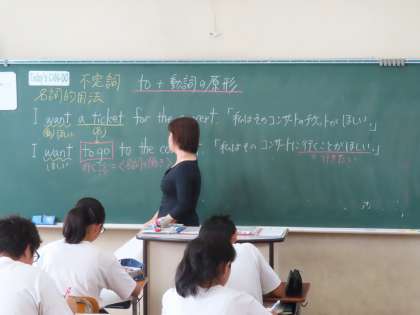 Today's CAN-DO
不定詞 to + 動詞の原形
名詞的用法
I want a ticket for the concert. 「私はそのコンサートのチケットがほしい。」
I want to go to the co 「私はそのコンサートに行くことがほしい。」
ほしい 行くこと
行きたい